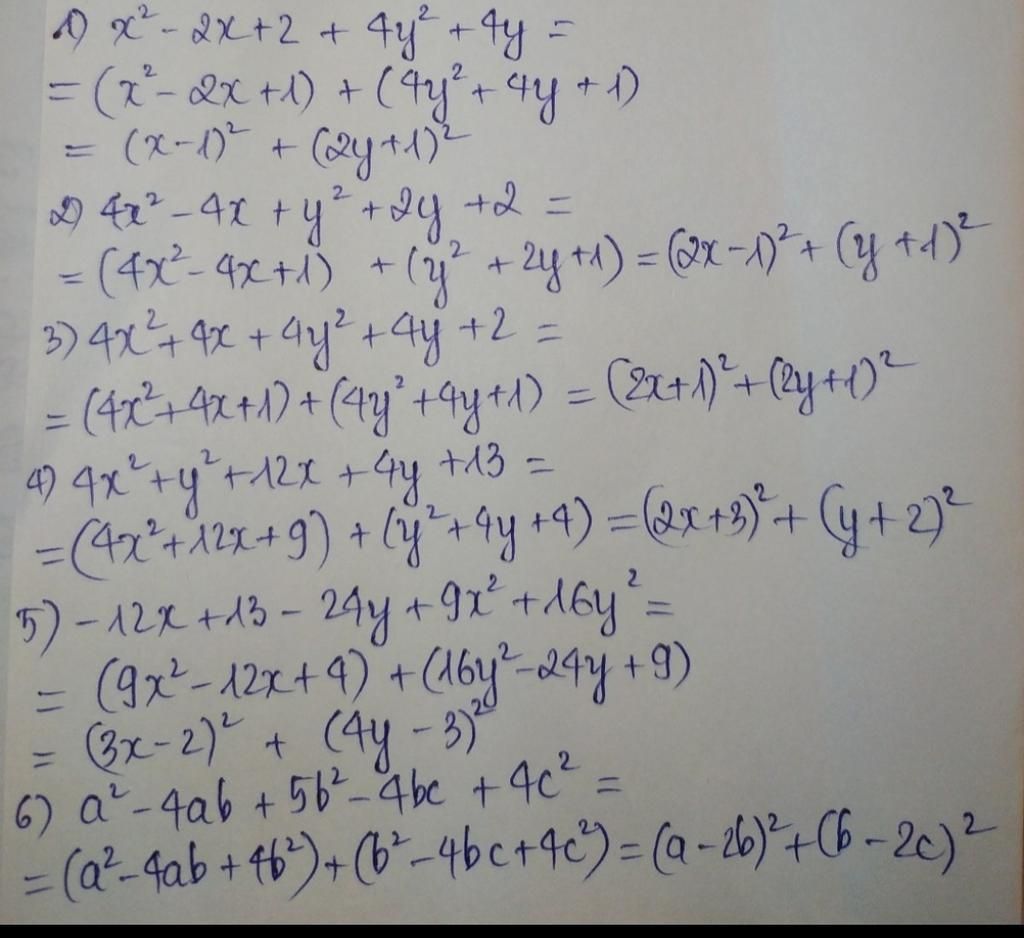 1) x² - 2x + 2 + 4y² + 4y =
= (x² - 2x + 1) + (4y² + 4y + 1)
= (x - 1)² + (2y + 1)²
2) 4x² - 4x + y² + 2y + 2 =
= (4x² - 4x + 1) + (y² + 2y + 1) = (2x - 1)² + (y + 1)²
3) 4x² + 4x + 4y² + 4y + 2 =
= (4x² + 4x + 1) + (4y² + 4y + 1) = (2x + 1)² + (2y + 1)²
4) 4x² + y² + 12x + 4y + 13 =
= (4x² + 12x + 9) + (y² + 4y + 4) = (2x + 3)² + (y + 2)²
5) - 12x + 13 - 24y + 9x² + 16y² =
= (9x² - 12x + 4) + (16y² - 24y + 9)
= (3x - 2)² + (4y - 3)²
6) a² - 4ab + 5b² - 4bc + 4c² =
= (a² - 4ab + 4b²) + (b² - 4bc + 4c²) = (a - 2b)² + (b - 2c)²